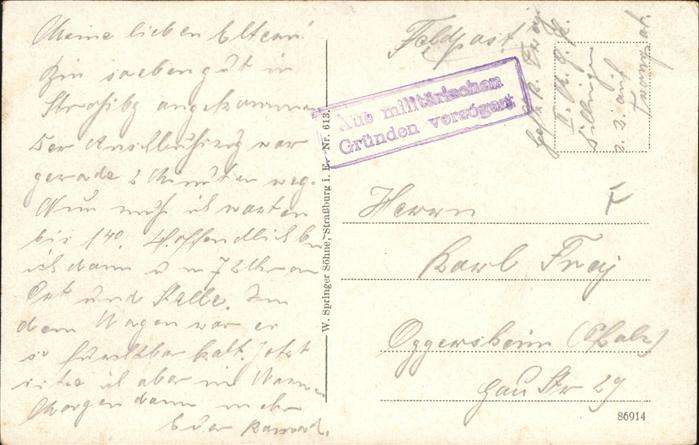 Meine lieben Eltern!
Bin soeben gut in
Straßbg angekommen
Der Anschlußzug war
gerade 2 Minuten weg.
Nun muß ich warten
bis 1 40. Hoffendlich bin
ich dann u m 7 Uhr an
Ort und Stelle. In
dem Wagen war es
so furchtbar kalt. Jetzt
sitze ich aber im Warmen
Morgen dann mehr
Euer
W. Springer Söhne, Straßburg i. E. Nr. 613.
Feldpost
Aus militärischen
Gründen verzögert
z. Z. auf
Transport.
Herrn
Karl Frey
Oggersheim (Pfalz)
Gau Str 29
86914